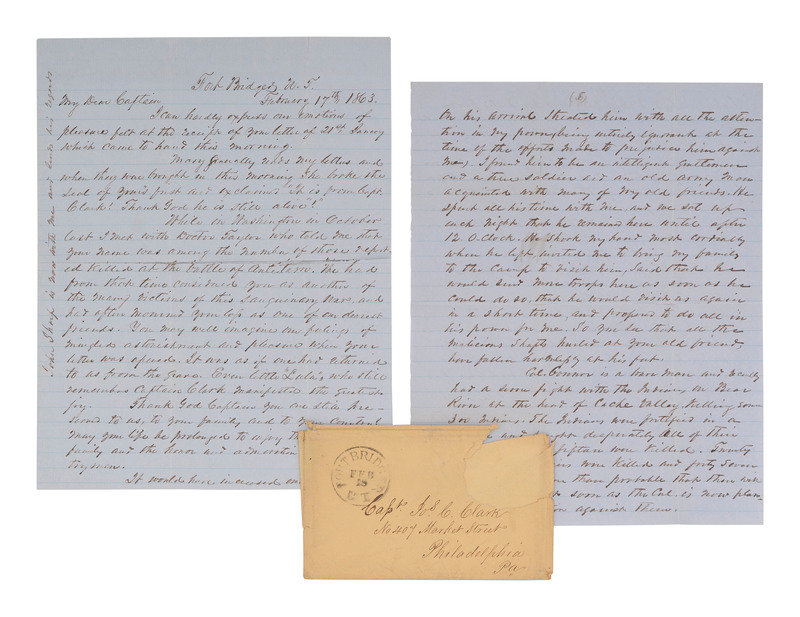 Fort Bridger, U.T.
February 17th 1863.
My Dear Captain
I can hardly express our emotions of
pleasure felt at the receipt of your letter of 21st Jany
which came to hand this morning.
Mary Generally reads my letters and
when they was brought in this morning she broke the
seal of your's first and exclaimed "it is from Capt
Clark! Thank God he is still alive!"
While in Washington in October
last I met with Doctor Taylor who told me that
your name was among the number of those report-
ed killed at the battle of Antietam. We had
from that time considered you as another of
the many victims of this Sanguinary War, and
had often mourned your loss as one of our dearest
friends. You may well imagine our feelings of
mingled astonishment and pleasure when your
letter was opened. It was as if one had returned
to us from the grave. Even little "Lula", who still
remembers Captain Clark manifested the greatest
joy. Thank God Captain you are still
to us, to your family and to your Country
may your life be prolonged to enjoy the
family and the honor and admiration
trymen.
It would have increased our
John Sharp is now with me and sends his regards
(5)
On his arrival I treated him with all the atten-
tion in my power, being entirely ignorant at the
time of the efforts made to prejudice him against
me. I found him to be an intelligent gentleman
and a true soldier and an old army man
acquainted with many of my old friends. He
spent all his time with me and we sat up
each night that he remained here until after
12. O.clock. He shook my hand most cordially
when he left, invited me to bring my family
to the Camp to visit him, said that he
would send more troops here as soon as he
could do so, that he would visit us again
in a short time, and proposed to do all in
his power for me. So you see that all the
malicious shafts hurled at your old friend
have fallen harmlessly at his feet.
Col. Connor is a brave man and really
had a severe fight with the Indians on Bear
River at the head of Cache Valley, killing some
300 Indians. The Indians were fortified in a
and fought desperately all of their
were killed. Twenty
were killed and forty seven
than probable that there will
soon as the Col. is now plan-
against them.
FORT BRIDGER
FEB
18
U.T.
Capt. Jos. C. Clark
No 407 Market Street
Philadelphia
Pa.